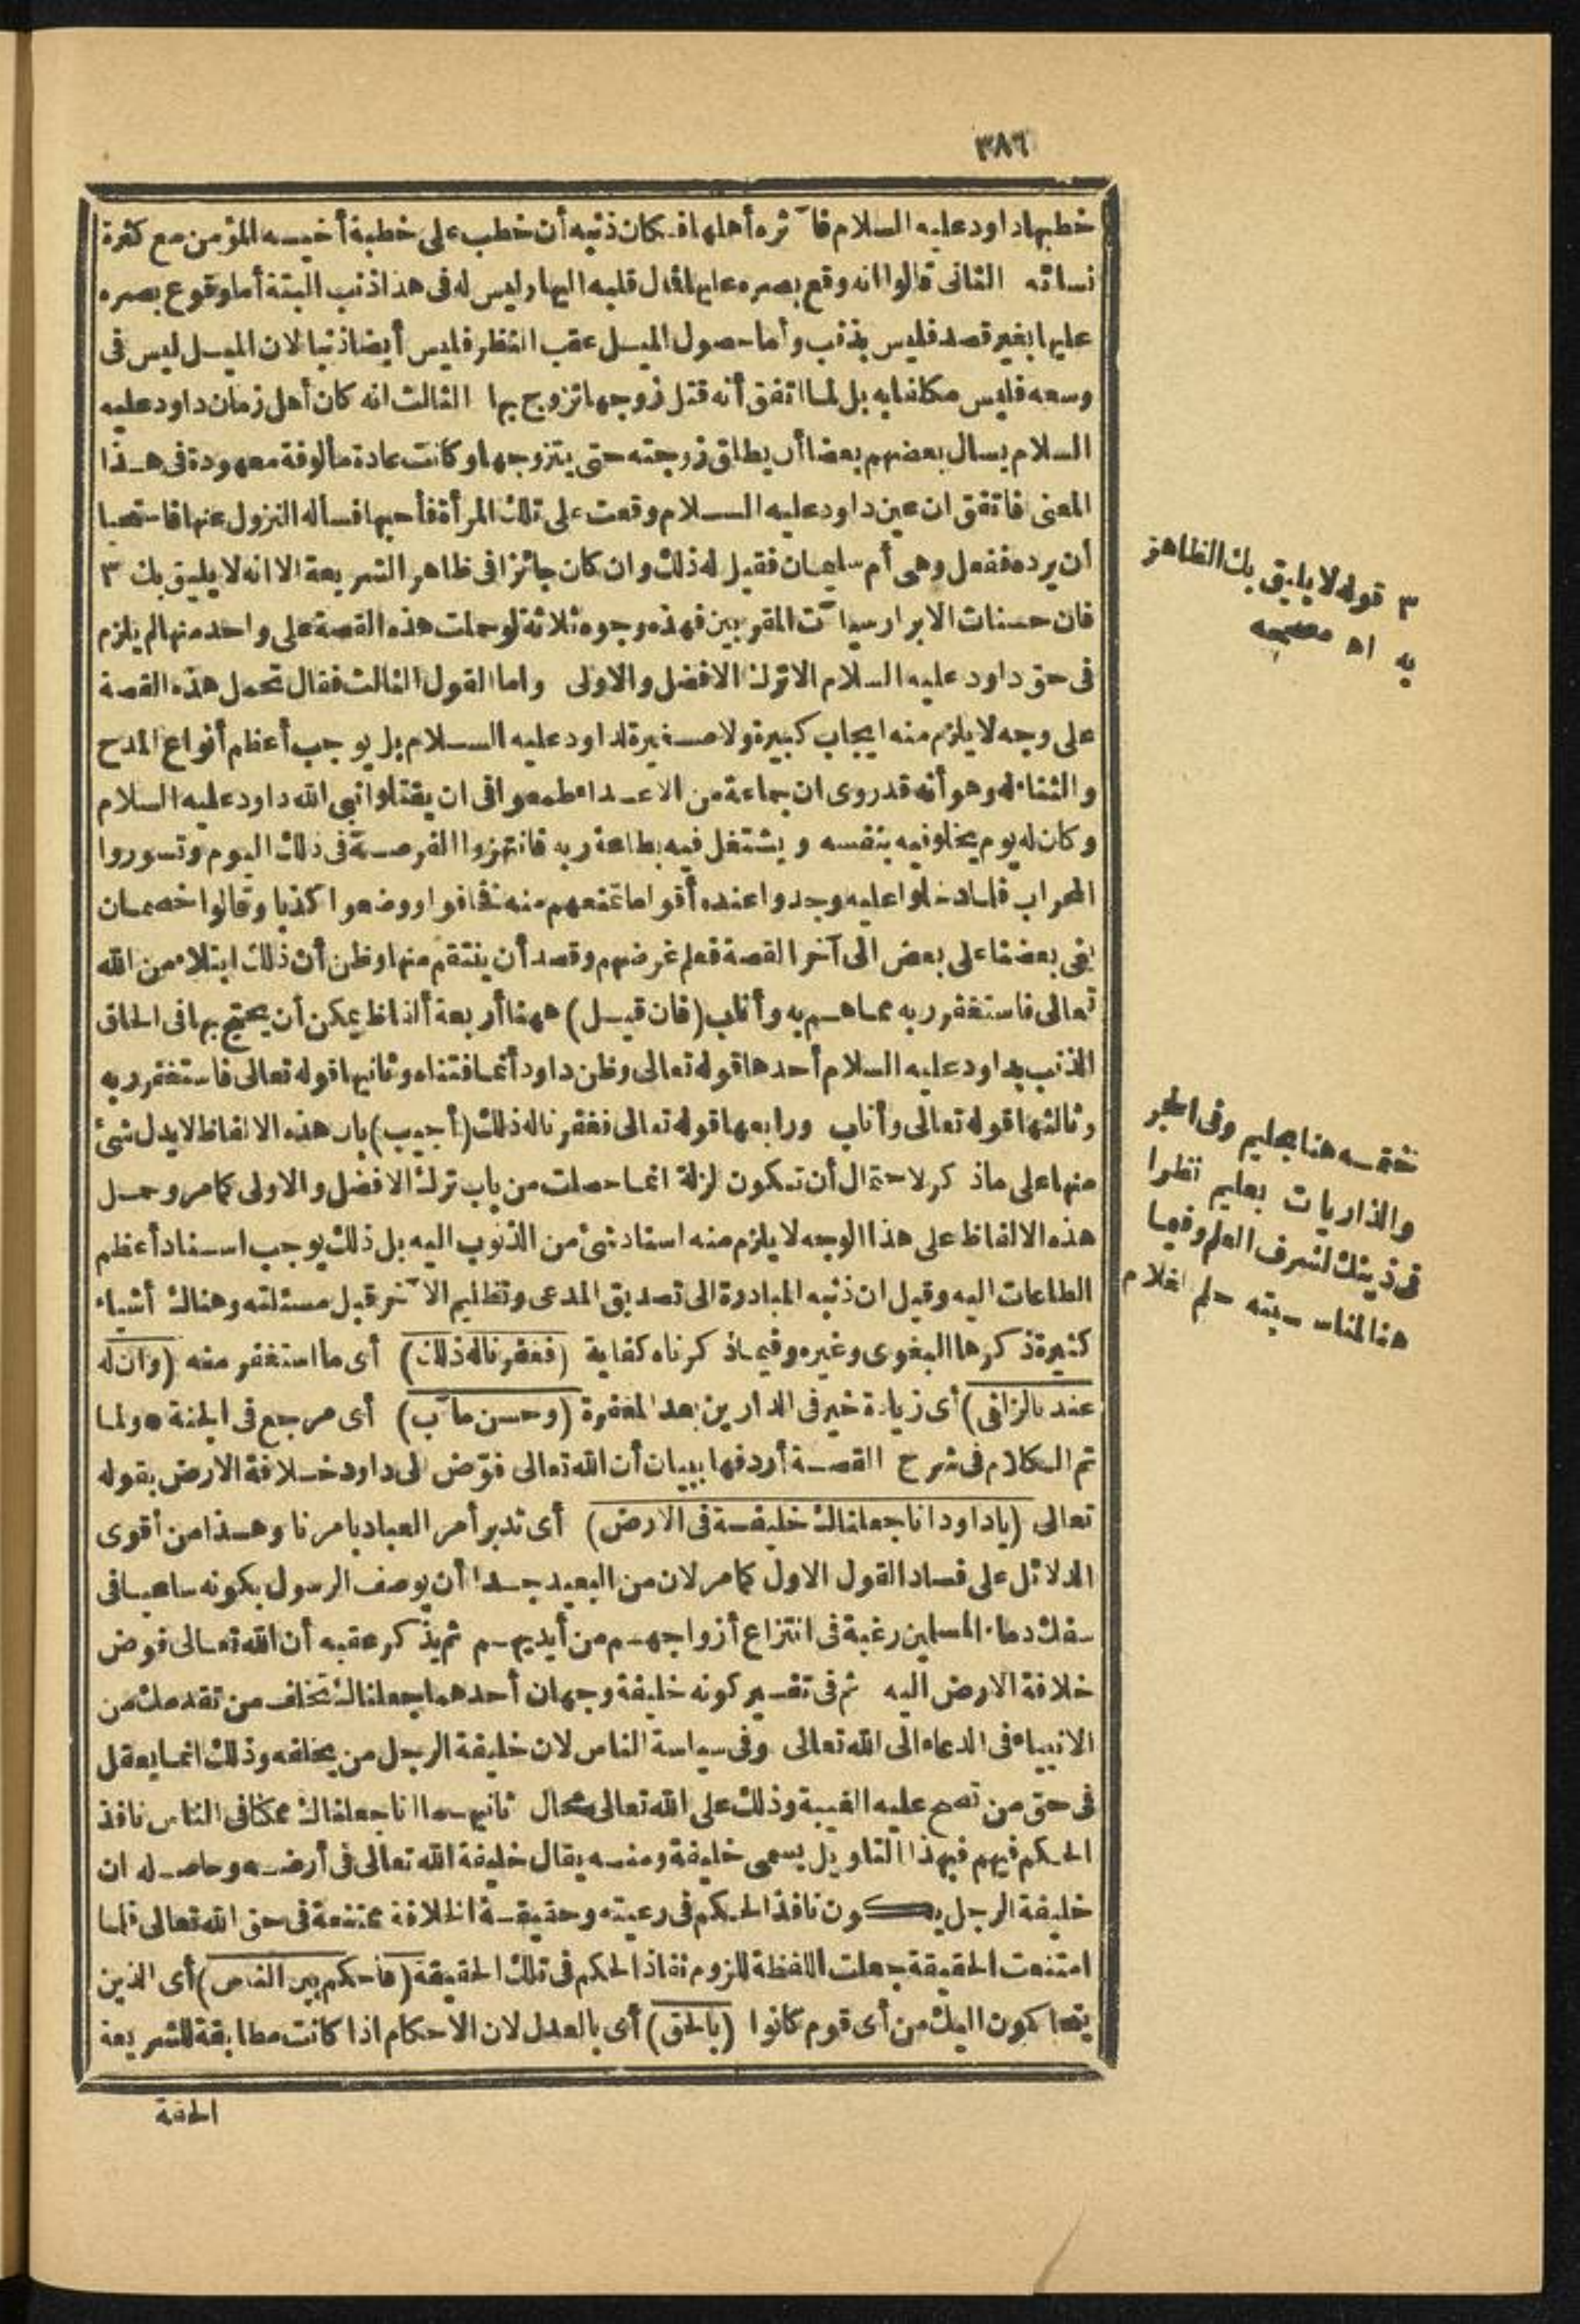 ٣٨٦
خطبها داود عليه السلام فآثره أهلها فكان ذنبه أن خطب على خطبة أخيه المؤمن مع كثرة
نسائه الثانى قالوا انه وقع بصره عليها فمال قلبه اليها وليس له فى هذا ذنب البتة أما وقوع بصره
عليها بغير قصد فليس بذنب وأما حصول الميل عقب النظر فليس أيضا ذنبا لان الميل ليس فى
وسعه فليس مكلفا به بل لما اتفق أنه قتل زوجها تزوج بها الثالث انه كان أهل زمان داود عليه
السلام يسال بعضهم بعضا أن يطلق زوجته حتى يتزوجها وكانت عادة مألوفة معهودة فى هذا
المعنى فاتفق ان عين داود عليه السلام وقعت على تلك المرأة فأحبها فسأله النزول عنها فاستحيا
أن يرده ففعل وهى أم سليمان فقيل له ذلك وان كان جائزا فى ظاهر الشريعة الا انه لا يليق بك ٣
فان حسنات الابرار سيآت المقربين فهذه وجوه ثلاثة لو حملت هذه القصة على واحد منها لم يلزم
فى حق داود عليه السلام الا ترك الافضل والاولى واما القول الثالث فقال تحمل هذه القصة
على وجه لا يلزم منه ايجاب كبيرة ولا صغيرة لداود عليه السلام بل يوجب أعظم أنواع المدح
والثناء له وهو أنه قد روى ان جماعة من الاعداء طمعوا فى ان يقتلوا نبى الله داود عليه السلام
وكان له يوم يخلو فيه بنفسه ويشتغل فيه بطاعة ربه فانتهزوا الفرصة فى ذلك اليوم وتسوروا
المحراب فلما دخلوا عليه وجدوا عنده أقواما تمنعهم منه فخافوا ووضعوا كذبا وقالوا خصمان
بغى بعضنا على بعض الى آخر القصة فعلم غرضهم وقصد أن ينتقم منها وظن أن ذلك ابتلاء من الله
تعالى فاستغفر ربه مما هم به وأناب (فان قيل) ههنا أربعة ألفاظ يمكن أن يحتج بها فى الحاق
الذنب بداود عليه السلام أحدها قوله تعالى وظن داود أنما فتناه وثانيها قوله تعالى فاستغفر ربه
وثالثها قوله تعالى وأناب ورابعها قوله تعالى فغفرنا له ذلك (أجيب) بان هذه الالفاظ لا يدل شئ
منها على ماذكر لاحتمال أن تكون لزلة انما حصلت من باب ترك الافضل والاولى كما مر وحمل
هذه الالفاظ على هذا الوجه لا يلزم منه اسناد شئ من الذنوب اليه بل ذلك يوجب اسناد أعظم
الطاعات اليه وقيل ان ذنبه المبادرة الى تصديق المدعى وتظليم الآخر قبل مسئلته وهناك أشياء
كثيرة ذكرها البغوى وغيره وفيما ذكرناه كفاية (فغفرنا له ذلك) أى ما استغفر منه (وان له
عندنا لزلفى) أى زيادة خير فى الدارين بعد المغفرة (وحسن مآب) أى مرجع فى الجنة * ولما
تم الكلام فى شرح القصة أردفها ببيان أن الله تعالى فوّض الى داود خلافة الارض بقوله
تعالى (ياداود انا جعلناك خليفة فى الارض) أى تدبر أمر العباد بامرنا وهذا من أقوى
الدلائل على فساد القول الاول كما مر لان من البعيد جدا أن يوصف الرسول بكونه ساعيا فى
سفك دماء المسلمين رغبة فى انتزاع أزواجهم من أيديهم ثم يذكر عقبه أن الله تعالى فوض
خلافة الارض اليه ثم فى تفسير كونه خليفة وجهان أحدهما جعلناك تخلف من تقدمك من
الانبياء فى الدعاء الى الله تعالى وفى سياسة الناس لان خليفة الرجل من يخلفه وذلك انما يعقل
فى حق من تصح عليه الغيبة وذلك على الله تعالى محال ثانيهما انا جعلناك ممكنا فى الناس نافذ
الحكم فيهم فبهذا التاويل يسمى خليفة ومنه يقال خليفة الله تعالى فى أرضه وحاصله ان
خليفة الرجل يكون نافذ الحكم فى رعيته وحقيقة الخلافة ممتنعة فى حق الله تعالى فلما
امتنعت الحقيقة جعلت اللفظة للزوم نفاذ الحكم فى تلك الحقيقة (فاحكم بين الناس) أى الذين
يتحاكمون اليك من أى قوم كانوا (بالحق) أى بالعدل لان الاحكام اذا كانت مطابقة للشريعة
الحقة
٣ قوله لا يليق بك الظاهر
به اه مصححه
ختمه هنا بحليم وفى الحجر
والذاريات بعليم نظرا
فى ذينك لشرف العلم وفيما
هنا لمناسبته حلم الغلام